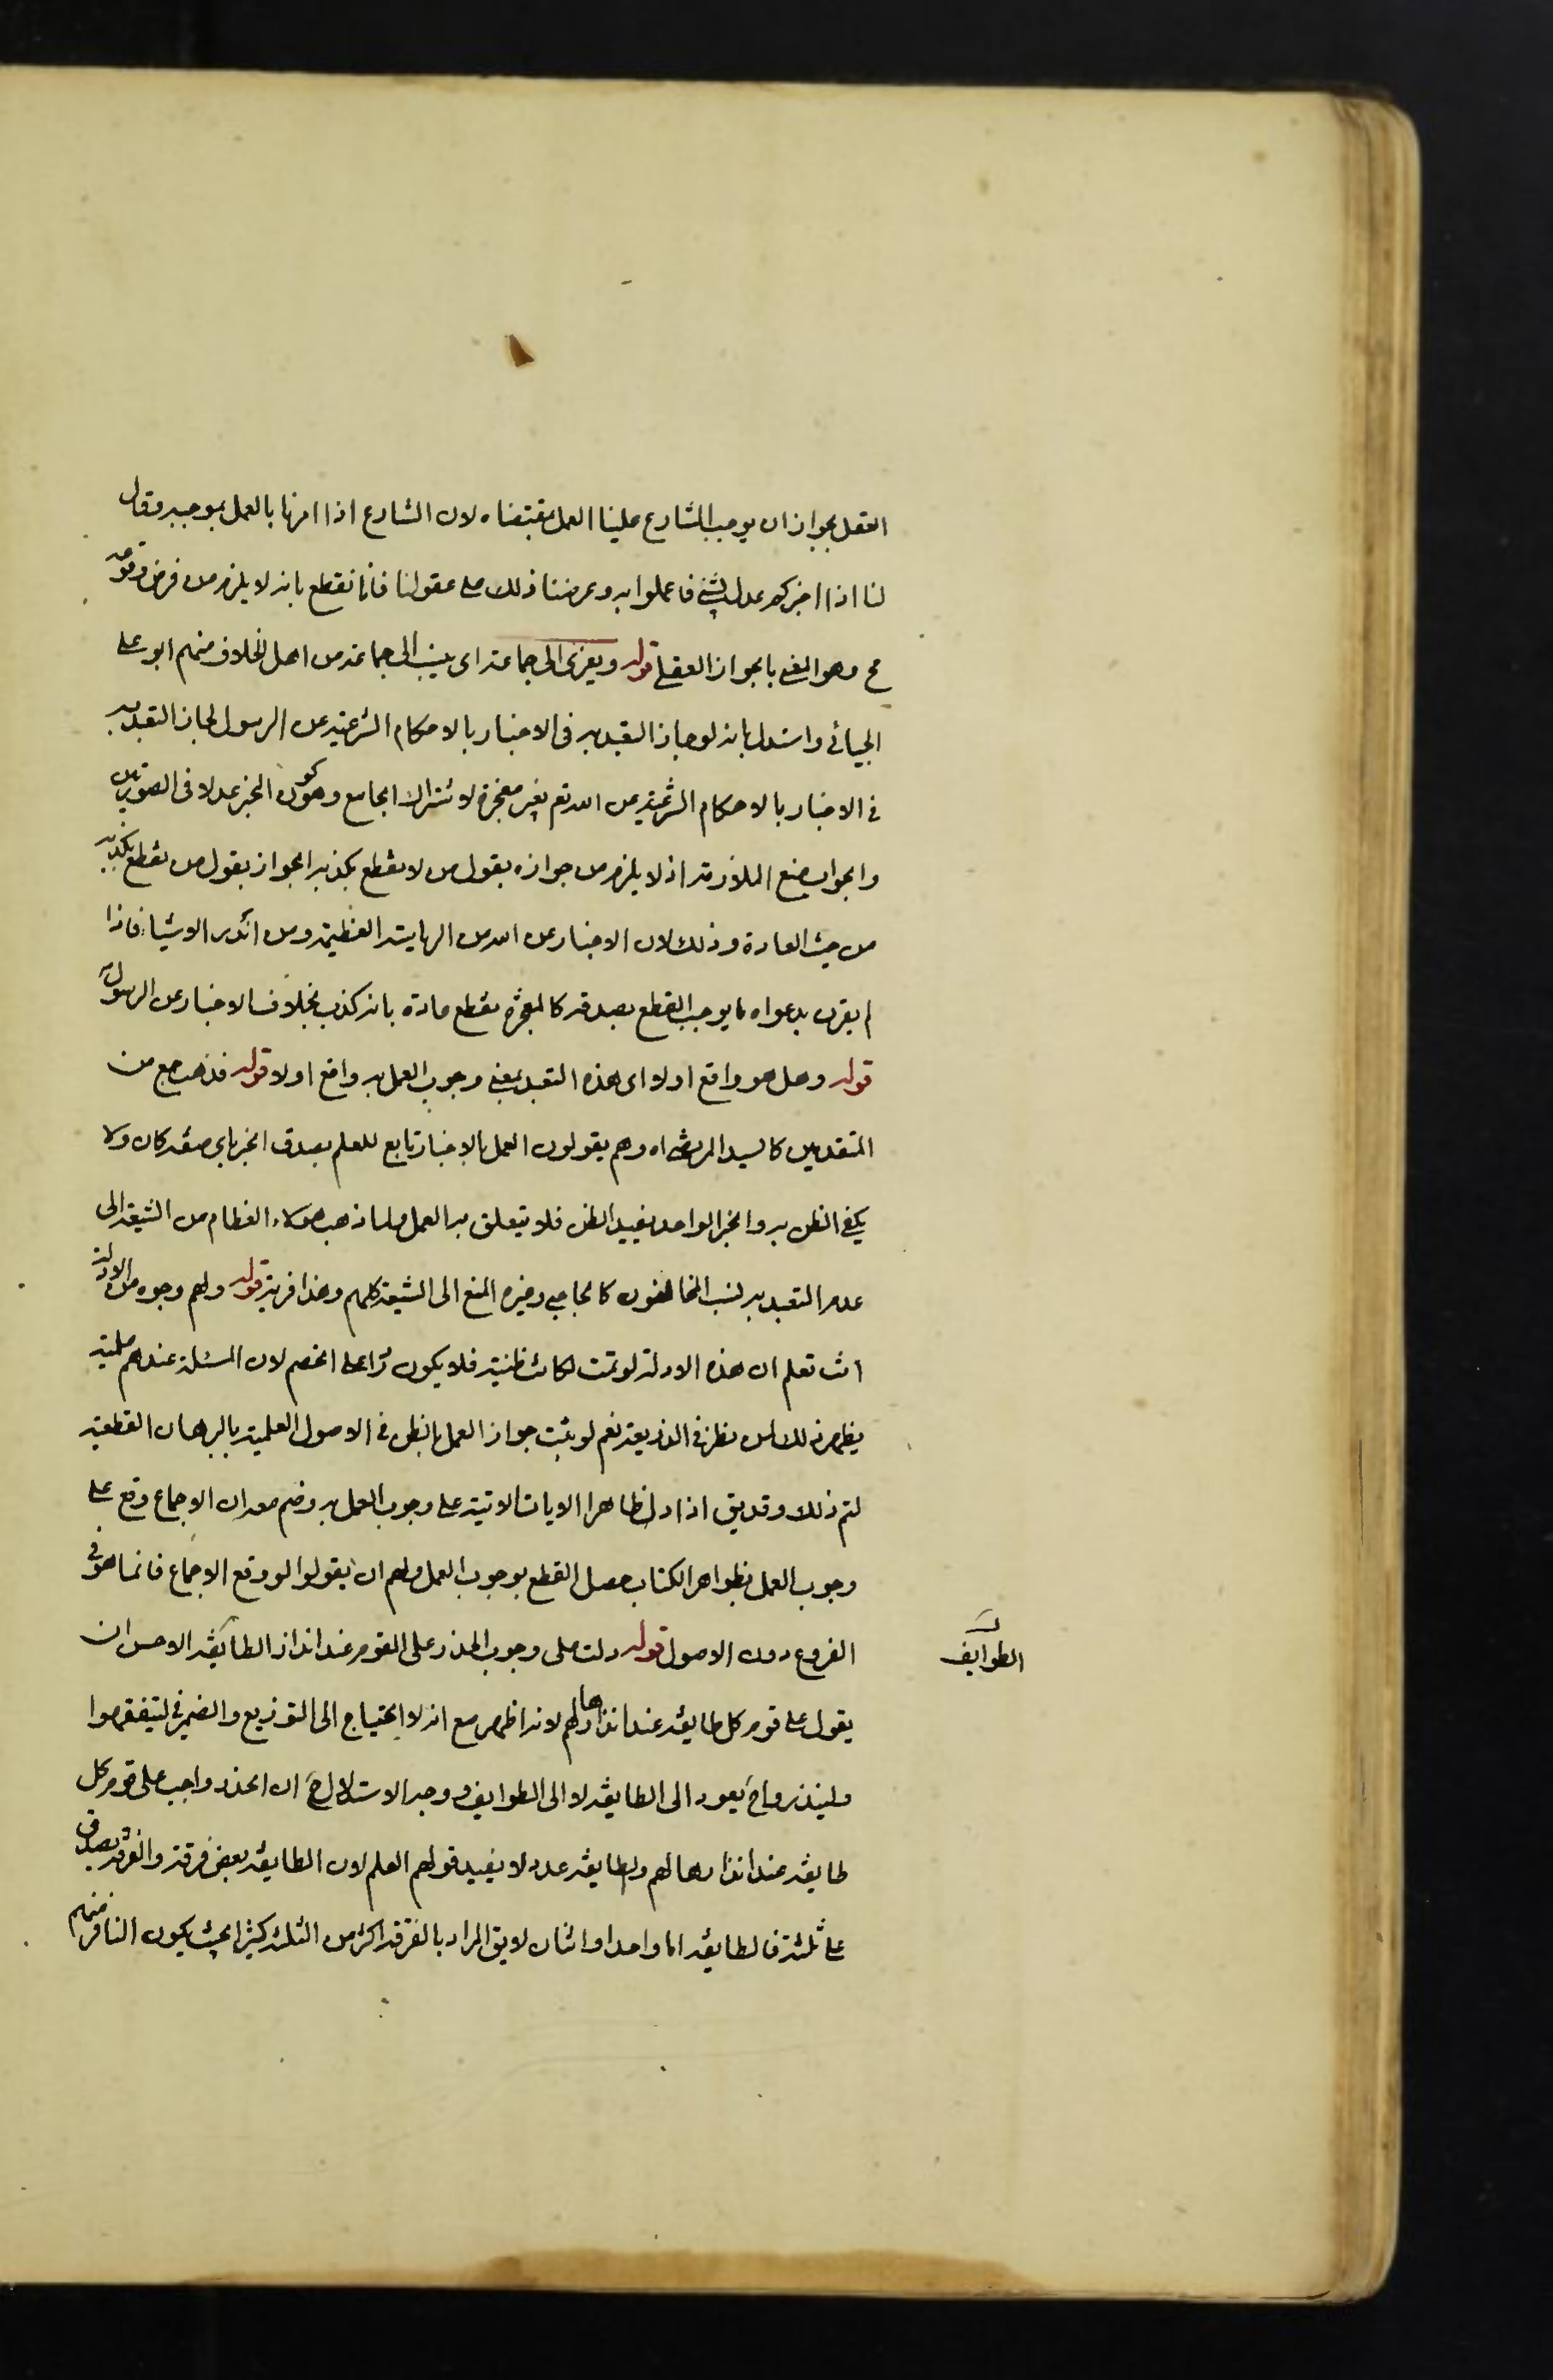 العقل بجواز ان يوجب الشارع علينا العمل بمقتضاه لان الشارع اذا امرنا بالعمل بموجبه وقال
لنا اذا اخبركم عدل بشئ فاعملوا به وعرضنا ذلك على عقولنا فانا نقطع بانه لا يلزم من فرض وقوعه
مح وهو المعنى بالجواز العقلى قوله ويعزى الى جماعة اى ينسب الى جماعة من اهل الخلاف منهم ابو على
الجبائى واستدل بانه لو جاز التعبد به فى الاخبار بالاحكام الشرعية عن الرسول لجاز التعبد به
فى الاخبار بالاحكام الشرعية عن الله تعم بغير معجزة لاشتراك الجامع وهو كون المخبر عدلا فى الصورتين
والجواب منع الملازمة اذ لا يلزم من جوازه بقول من لا نقطع بكذبه الجواز بقول من نقطع بكذبه
من حيث العادة وذلك لان الاخبار عن الله من الهايتد العظيمة ومن اندر الاشياء فاذا
لم يقرن بدعواه ما يوجب القطع بصدقه كالمعجزة نقطع عادة بانه كذب بخلاف الاخبار عن الرسول
قوله وهل هو واقع اولا اى هذه التعبد بمعنى وجوب العمل به واقع اولا قوله فذهب جمع من
المتقدمين كالسيد المرتضى اه وهم يقولون العمل بالاخبار تابع للعلم بصدق المخبر باى صفة كان ولا
يكفى الظن به والخبر الواحد يفيد الظن فلا يتعلق به العمل ولما ذهب هؤلاء العظام من الشيعة الى
عدم التعبد به نسب المخالفون كالحاجبى وغيره المنع الى الشيعة كلهم وهذا فرية قوله ولهم وجوه من الادلة
انت تعلم ان هذه الادلة لو تمت لكانت ظنية فلا يكون ردا على الخصم لان المسئلة عندهم علمية
يظهر ذلك لمن نظر فى الذريعة نعم لو ثبت جواز العمل بالظن فى الاصول العلمية بالبرهان القطعية
لتم ذلك وقد يق اذا دل ظاهر الايات الاتية على وجوب العمل به وضم معه ان الاجماع وقع على
وجوب العمل بظواهر الكتاب حصل القطع بوجوب العمل ولهم ان يقولوا لو وقع الاجماع فانما هو فى
الفروع دون الاصول قوله دلت على وجوب الحذر على القوم عند انذار الطائفة الاحسن ان
الطوايف
يقول على قوم كل طايفة عند انذارها لهم لانه اظهر مع انه لا يحتياج الى التوزيع والضمير فى ليتفقهوا
ولينذروا ح يعود الى الطايفة لا الى الطوايف ووجه الاستدلال ح ان الحذر واجب على قوم كل
طايفة عند انذارها لهم ولطايفة عدد لا يفيد قولهم العلم لان الطايفة بعض فرقة والفرقة يصدق
على ثلثة فالطايفة اما واحد او اثنان لا يق المراد بالفرقة اكثر من الثلثة كثيرا بحيث يكون النافر منهم